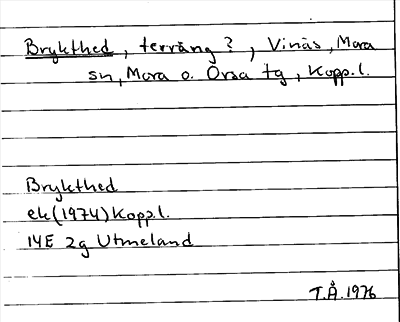 Brykthed, terräng?, Vinäs, Mora
sn, Mora o. Orsa tg, Kopp.l.
Brykthed
ek(1974)Kopp.l.
14E 2g Utmeland
T.Å.1976